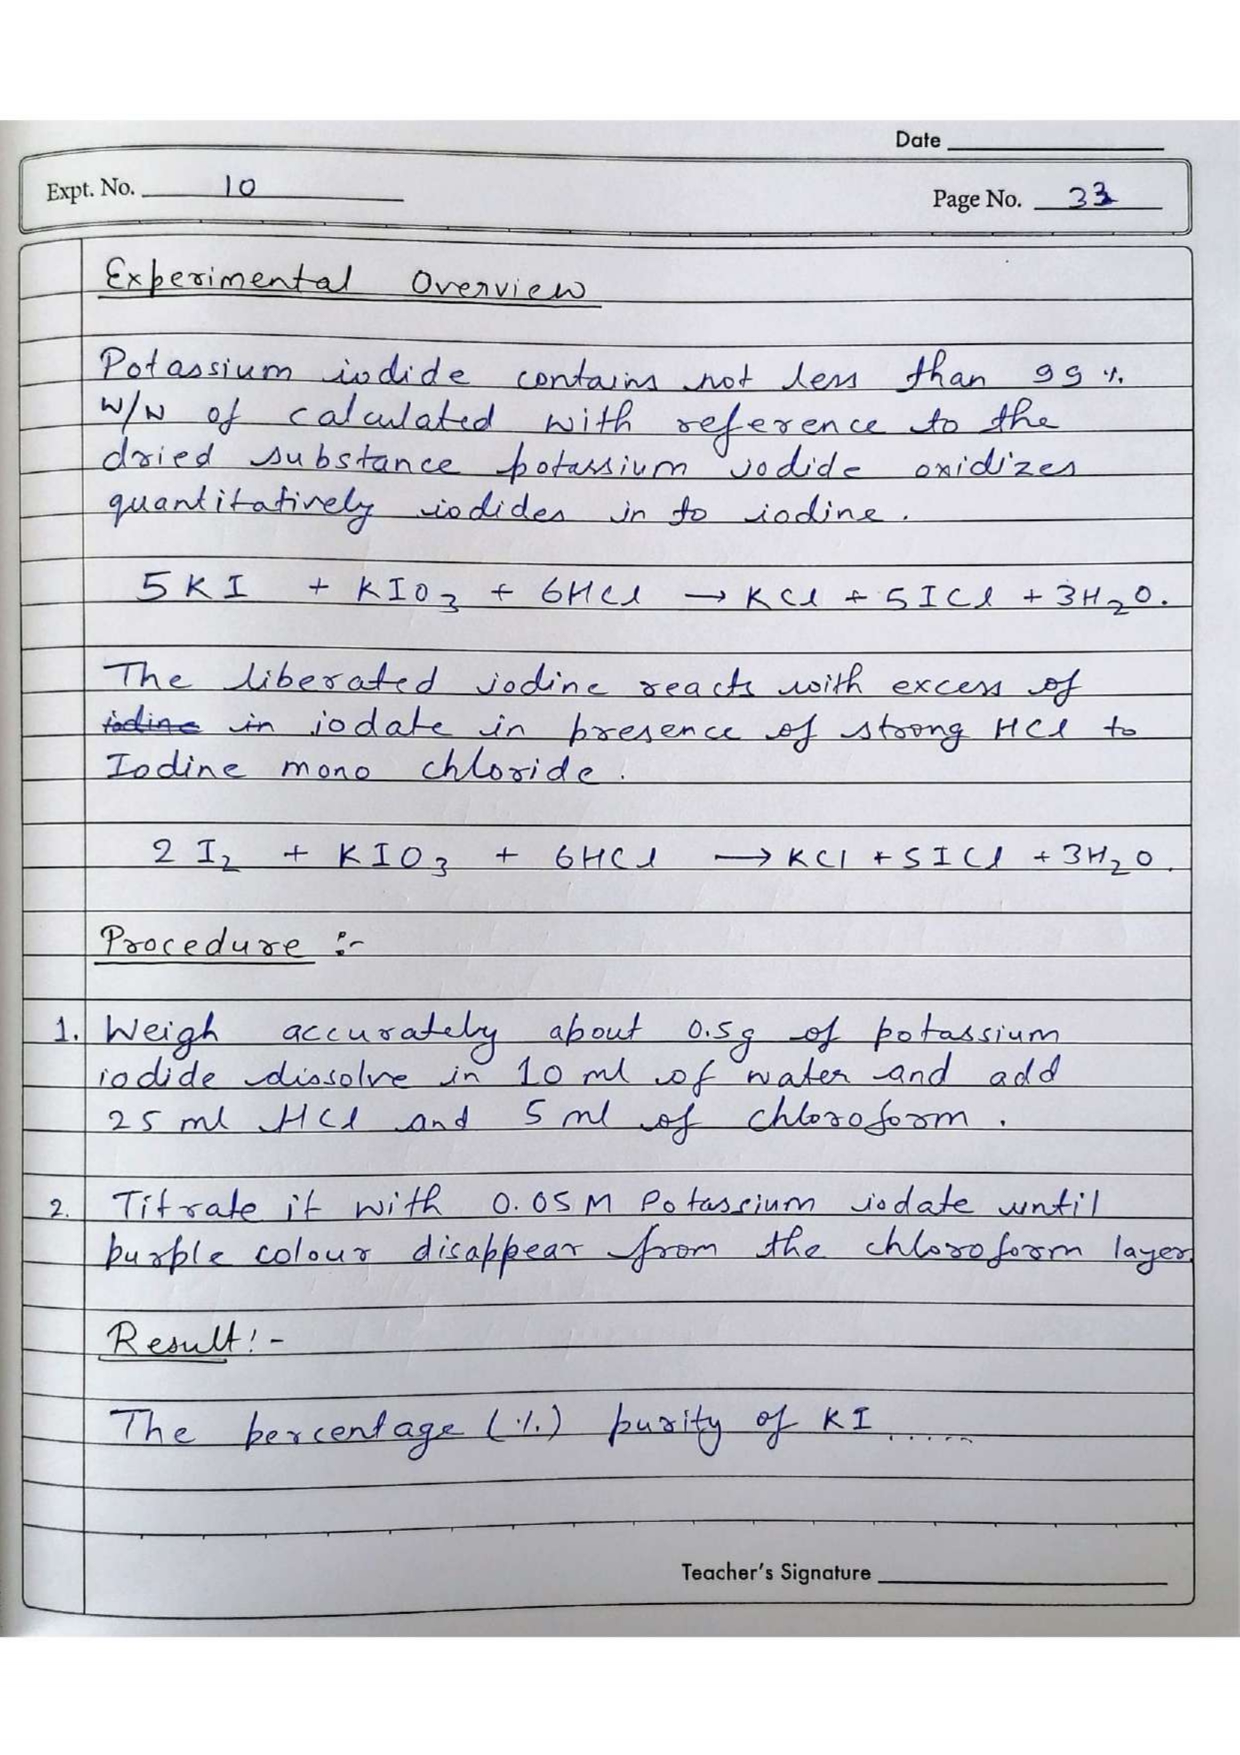 Date
Expt. No. 10
Page No. 33
Experimental Overview
Potassium iodide contains not less than 99 %.
W/W of calculated with reference to the
dried substance potassium iodide oxidizes
quantitatively iodides in to iodine.
5KI + KIO3 + 6HCl → KCl + 5ICl + 3H2O.
The liberated iodine reacts with excess of
iodine in iodate in presence of strong HCl to
Iodine mono chloride.
2 I2 + KIO3 + 6HCl → KCl + 5ICl + 3H2O.
Procedure :-
1. Weigh accurately about 0.5g of potassium
iodide dissolve in 10 ml of water and add
25 ml HCl and 5 ml of chloroform.
2. Titrate it with 0.05M Potassium iodate until
purple colour disappear from the chloroform layer
Result:-
The percentage (%) purity of KI .....
Teacher's Signature